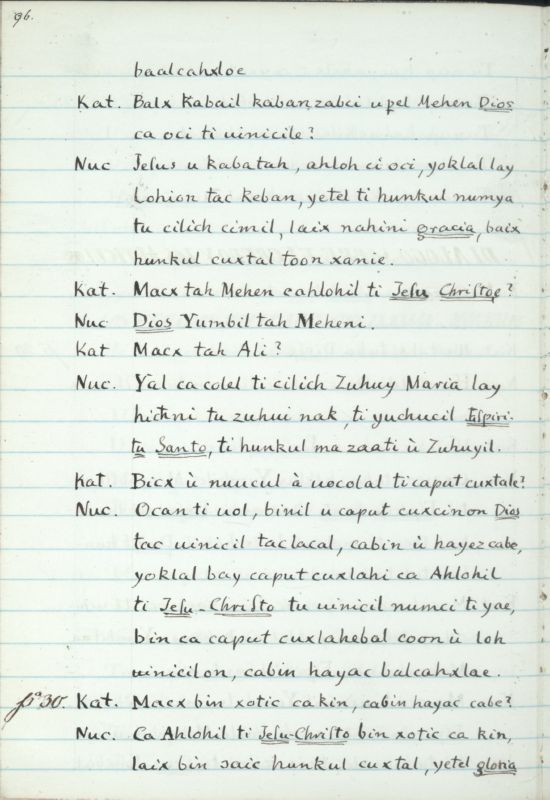 96.
baalcahxloe
Kat. Balx Kabail kabanzabci upel Mehen Dios
ca oci ti uinicile?
Nuc Jesus u kabatah, ahloh ci oci, yoklal lay
Lohion tac keban, yetel ti hunkul numya
tu cilich cimil, laix nahini gracia, baix
hunkul cuxtal toon xanie.
Kat. Macx tah Mehen cahlohil ti Jesu Christoe?
Nuc Dios Yumbil tah Meheni.
Kat Macx tah Ali?
Nuc. Yal ca colel ti cilich Zuhuy Maria lay
hichni tu zuhui nak, ti yuchucil
tu Santo, ti hunkul ma zaati ù Zuhuyil.
Kat. Bicx ù nuucul à uocolal ti caput cuxtale?
Nuc. Ocan ti uol, binil u caput cuxcinon Dios
tac uinicil taclacal, cabin ù hayez cabe,
yoklal bay caput cuxlahi ca Ahlohil
ti Jesu-Christo tu uinicil numci ti yae,
bin ca caput cuxlahebal coon ù loh
uinicilon, cabin hayac balcahxlae.
pº 30. Kat. Macx bin xotic ca kin, cabin hayac cabe?
Nuc. Ca Ahlohil ti Jesu-Christo bin xotic ca kin,
laix bin saic hunkul cuxtal, yetel gloria